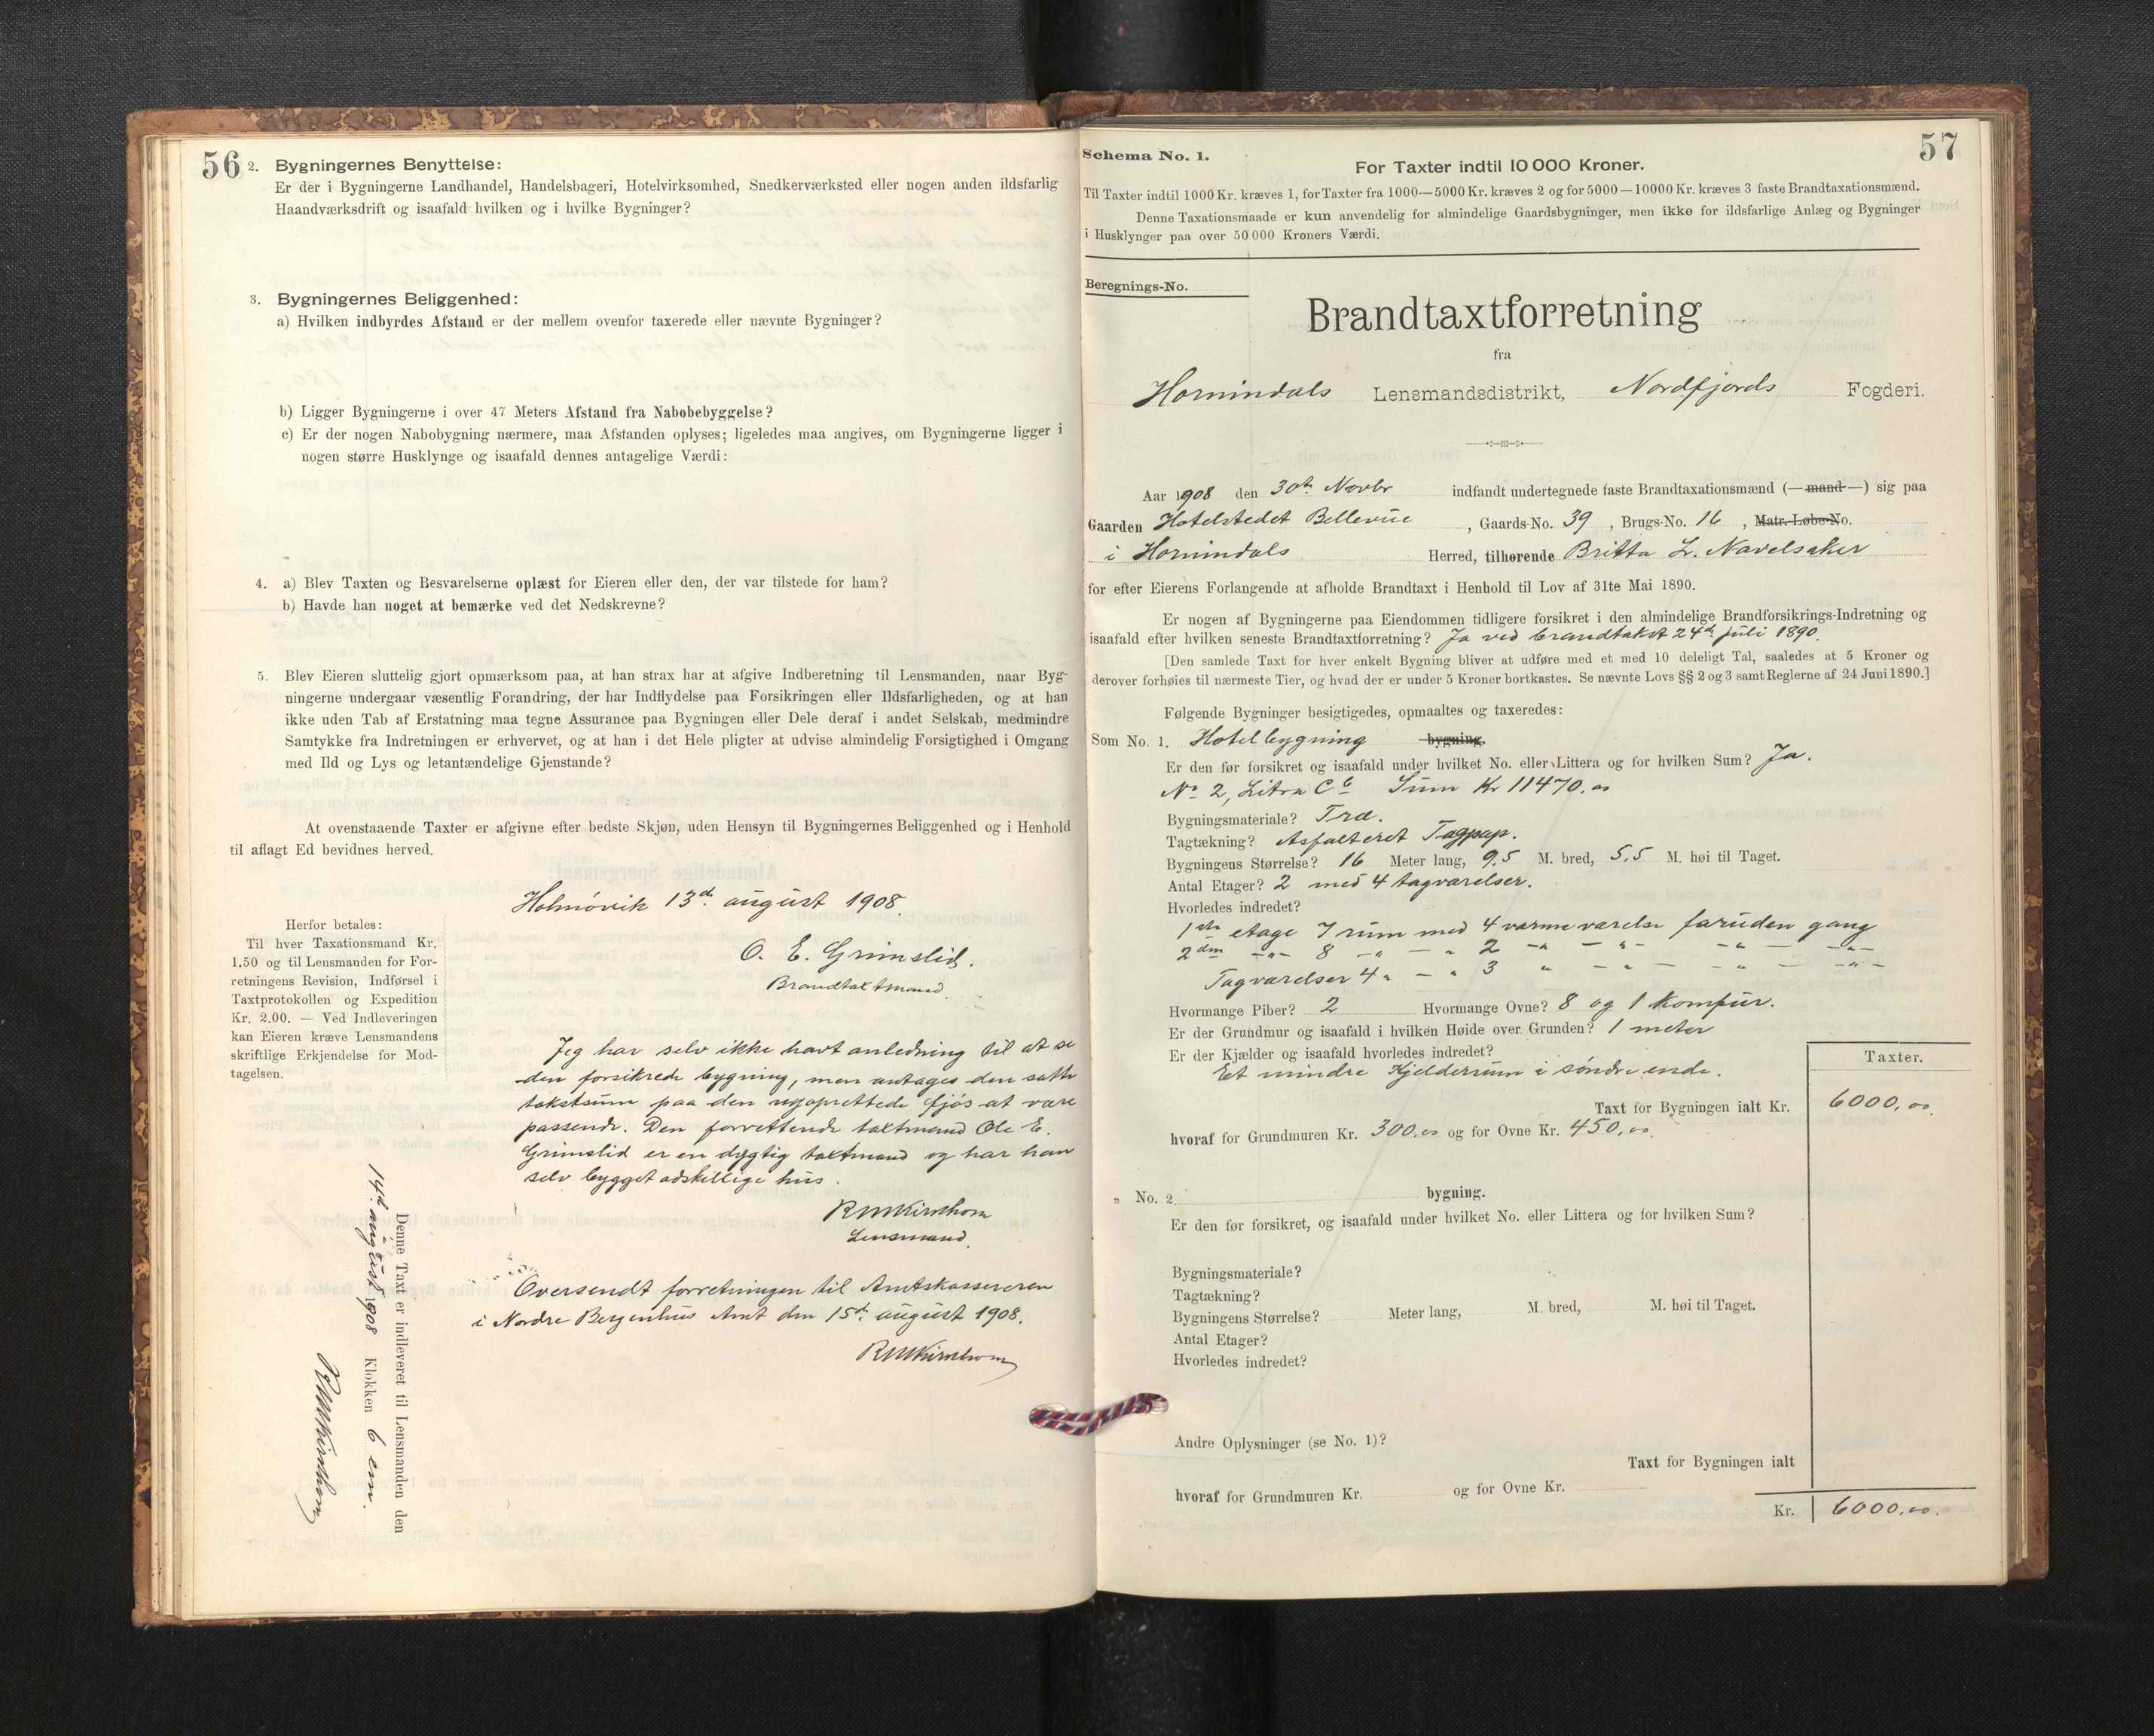 56
2. Bygningernes Benyttelse:
Er der i Bygningerne Landhandel, Handelsbageri, Hotelvirksomhed, Snedkerværksted eller nogen anden ildsfarlig
Haandværksdrift og isaafald hvilken og i hvilke Bygninger?
3. Bygningernes Beliggenhed:
a) Hvilken indbyrdes Afstand er der mellem ovenfor taxerede eller nævnte Bygninger?
b) Ligger Bygningerne i over 47 Meters Afstand fra Nabobebyggelse?
c) Er der nogen Nabobygning nærmere, maa Afstanden oplyses; ligeledes maa angives, om Bygningerne ligger i
nogen større Husklynge og isaafald dennes antagelige Værdi:
4. a) Blev Taxten og Besvarelserne oplæst for Eieren eller den, der var tilstede for ham?
b) Havde han noget at bemærke ved det Nedskrevne?
5. Blev Eieren sluttelig gjort opmærksom paa, at han strax har at afgive Indberetning til Lensmanden, naar Byg-
ningerne undergaar væsentlig Forandring, der har Indflydelse paa Forsikringen eller Ildsfarligheden, og at han
ikke uden Tab af Erstatning maa tegne Assurance paa Bygningen eller Dele deraf i andet Selskab, medmindre
Samtykke fra Indretningen er erhvervet, og at han i det Hele pligter at udvise almindelig Forsigtighed i Omgang
med Ild og Lys og letantændelige Gjenstande?
At ovenstaaende Taxter er afgivne efter bedste Skjøn, uden Hensyn til Bygningernes Beliggenhed og i Henhold
til aflagt Ed bevidnes herved.
Holmövik 13d. august 1908.
O. E. Grimslid.
Brandtaxtmand.
Herfor betales:
Til hver Taxationsmand Kr.
1.50 og til Lensmanden for For-
retningens Revision, Indførsel i
Taxtprotokollen og Expedition
Kr. 2.00. — Ved Indleveringen
kan Eieren kræve Lensmandens
skriftlige Erkjendelse for Mod-
tagelsen.
Jeg har selv ikke havt anledning til at se
den forsikrede bygning, men antages den satte
takstsum paa den nyoprettede fjós at være
passende. Den forrettende taxtmand Ole E.
Grimslid er en dygtig taxtmand og har han
selv bygget adskillige hus.
Lensmand.
Oversendt forretningen til Amtskassereren
i Nordre Bergenhus Amt den 15d. august 1908.
Denne Taxt er indleveret til Lensmanden den
14d. august 1908 Klokken 6 em.
57
Schema No. 1.
For Taxter indtil 10 000 Kroner.
Til Taxter indtil 1000 Kr. kræves 1, for Taxter fra 1000—5000 Kr. kræves 2 og for 5000—10000 Kr. kræves 3 faste Brandtaxationsmænd.
Denne Taxationsmaade er kun anvendelig for almindelige Gaardsbygninger, men ikke for ildsfarlige Anlæg og Bygninger
i Husklynger paa over 50 000 Kroners Værdi.
Beregnings-No.
Brandtaxtforretning
fra
Hornindals Lensmandsdistrikt, Nordfjords Fogderi.
Aar 1908 den 30te Novbr indfandt undertegnede faste Brandtaxationsmænd (—mand—) sig paa
Gaarden Hotelstedet Bellevue, Gaards-No. 39, Brugs-No. 16, Matr.-Løbe-No.
i Hornindals Herred, tilhørende Britta L. Navelsaker
for efter Eierens Forlangende at afholde Brandtaxt i Henhold til Lov af 31te Mai 1890.
Er nogen af Bygningerne paa Eiendommen tidligere forsikret i den almindelige Brandforsikrings-Indretning og
isaafald efter hvilken seneste Brandtaxtforretning? Ja ved brandtakst 24de juli 1890.
[Den samlede Taxt for hver enkelt Bygning bliver at udføre med et med 10 deleligt Tal, saaledes at 5 Kroner og
derover forhøies til nærmeste Tier, og hvad der er under 5 Kroner bortkastes. Se nævnte Lovs §§ 2 og 3 samt Reglerne af 24 Juni 1890.]
Følgende Bygninger besigtigedes, opmaaltes og taxeredes:
Som No. 1. Hotelbygning bygning.
Er den før forsikret og isaafald under hvilket No. eller Littera og for hvilken Sum? Ja.
No 2, Litra C b Sum Kr 11470.00
Bygningsmateriale? Træ.
Tagtækning? Asfalteret Tagpap.
Bygningens Størrelse? 16 Meter lang, 9.5 M. bred, 5.5 M. høi til Taget.
Antal Etager? 2 med 4 tagværelser.
Hvorledes indredet?
1ste etage 7 rum med 4 varme værelse foruden gang
2den -"- 8 -"- 2 -"- -"- -"- -"-
Tagværelser 4 " - " 3 " - " - -"- -"-
Hvormange Piber? 2 Hvormange Ovne? 8 og 1 komfur.
Er der Grundmur og isaafald i hvilken Høide over Grunden? 1 meter
Er der Kjælder og isaafald hvorledes indredet?
Et mindre Kjelderrum i söndre ende.
Taxter.
Taxt for Bygningen ialt Kr. 6000,00.
hvoraf for Grundmuren Kr. 300.00 og for Ovne Kr. 450,00.
" No. 2 bygning.
Er den før forsikret, og isaafald under hvilket No. eller Littera og for hvilken Sum?
Bygningsmateriale?
Tagtækning?
Bygningens Størrelse? Meter lang, M. bred, M. høi til Taget.
Antal Etager?
Hvorledes indredet?
Andre Oplysninger (se No. 1)?
Taxt for Bygningen ialt
hvoraf for Grundmuren Kr. og for Ovne Kr.
Kr. 6000.00.